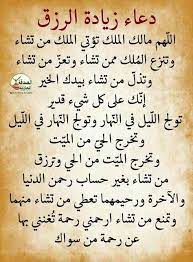 دعاء زيادة الرزق
اللّهم مالك الملك تؤتي الملك من تشاء
وتنزع المُلك ممن تشاء وتعزّ من تشاء
وتذلّ من تشاء بيدك الخير
إنّك على كل شيء قدير
تولج اللّيل في النّهار وتولج النّهار في اللّيل
وتخرج الحيّ من الميّت
وتخرج الميّت من الحيّ وترزق
من تشاء بغير حساب رحمن الدنيا
والآخرة ورحيمهما تعطي من تشاء منهما
وتمنع من تشاء ارحمني رحمة تُغنني بها
عن رحمة من سواك